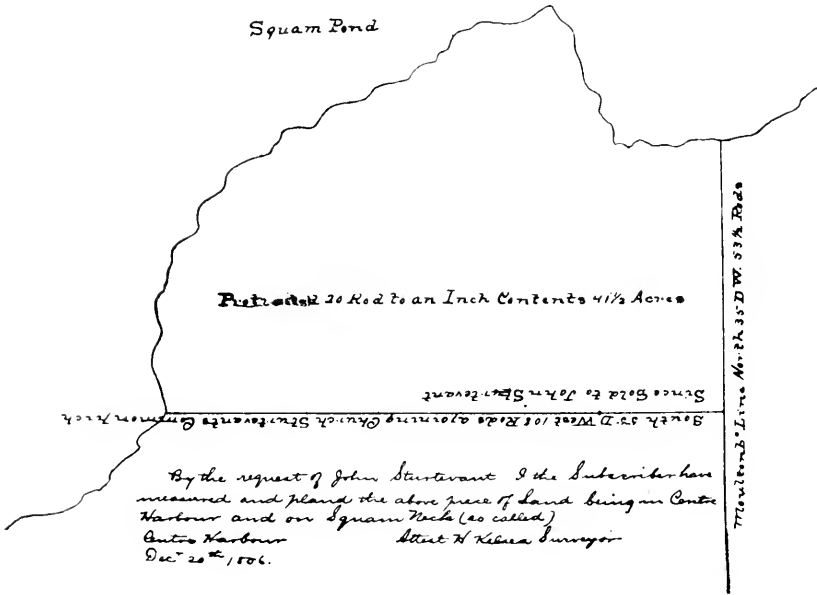 Squam Pond
Protracted 20 Rod to an Inch Contents 41½ Acres
Since Sold to John Sturtevant
South 55 D West 108 Rods ajoining Church Sturtevants Common pich
Moultons Line North 35 D W. 53½ Rods
By the request of John Sturtevant I the Subscriber have
measured and pland the above piece of Land being in Centre
Harbour and on Squam Neck (so called)
Centre Harbour Attest W Kelsea Surveyor
Decr 20th 1806.